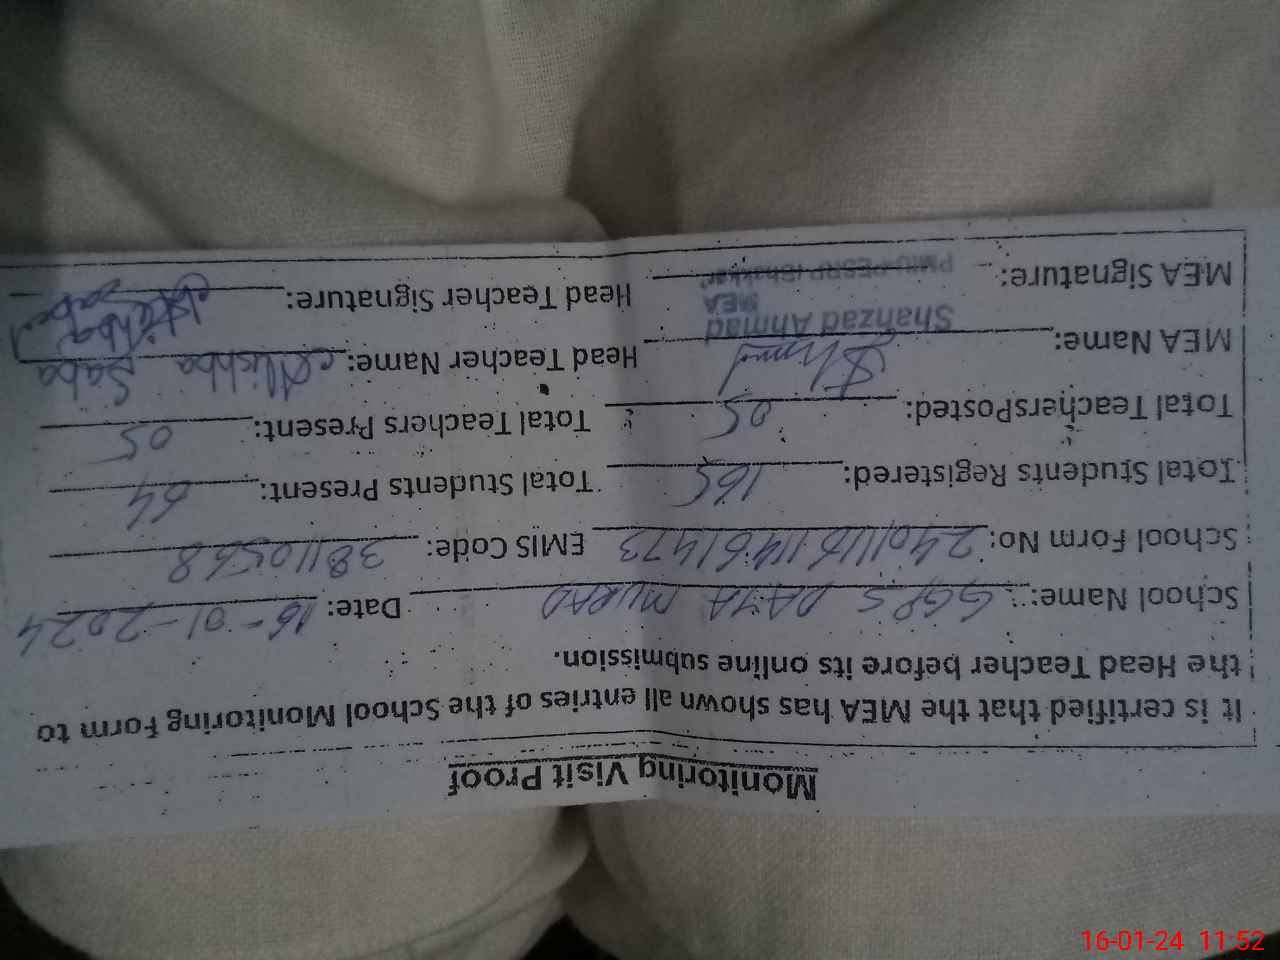 Monitoring Visit Proof
It is certified that the MEA has shown all entries of the School Monitoring Form to
the Head Teacher before its online submission.
School Name: GGPS DAYA MURAD Date: 16-01-2024
School Form No: 24011611461473 EMIS Code: 38110568
Total Students Registered: 165 Total Students Present: 64
Total TeachersPosted: 05 Total Teachers Present: 05
MEA Name: Shahzad Ahmad Head Teacher Name: Alishba Saba
MEA
MEA Signature: PMIU-PESRP (Bhakkar) Head Teacher Signature: Alishba Saba
16-01-24 11:52